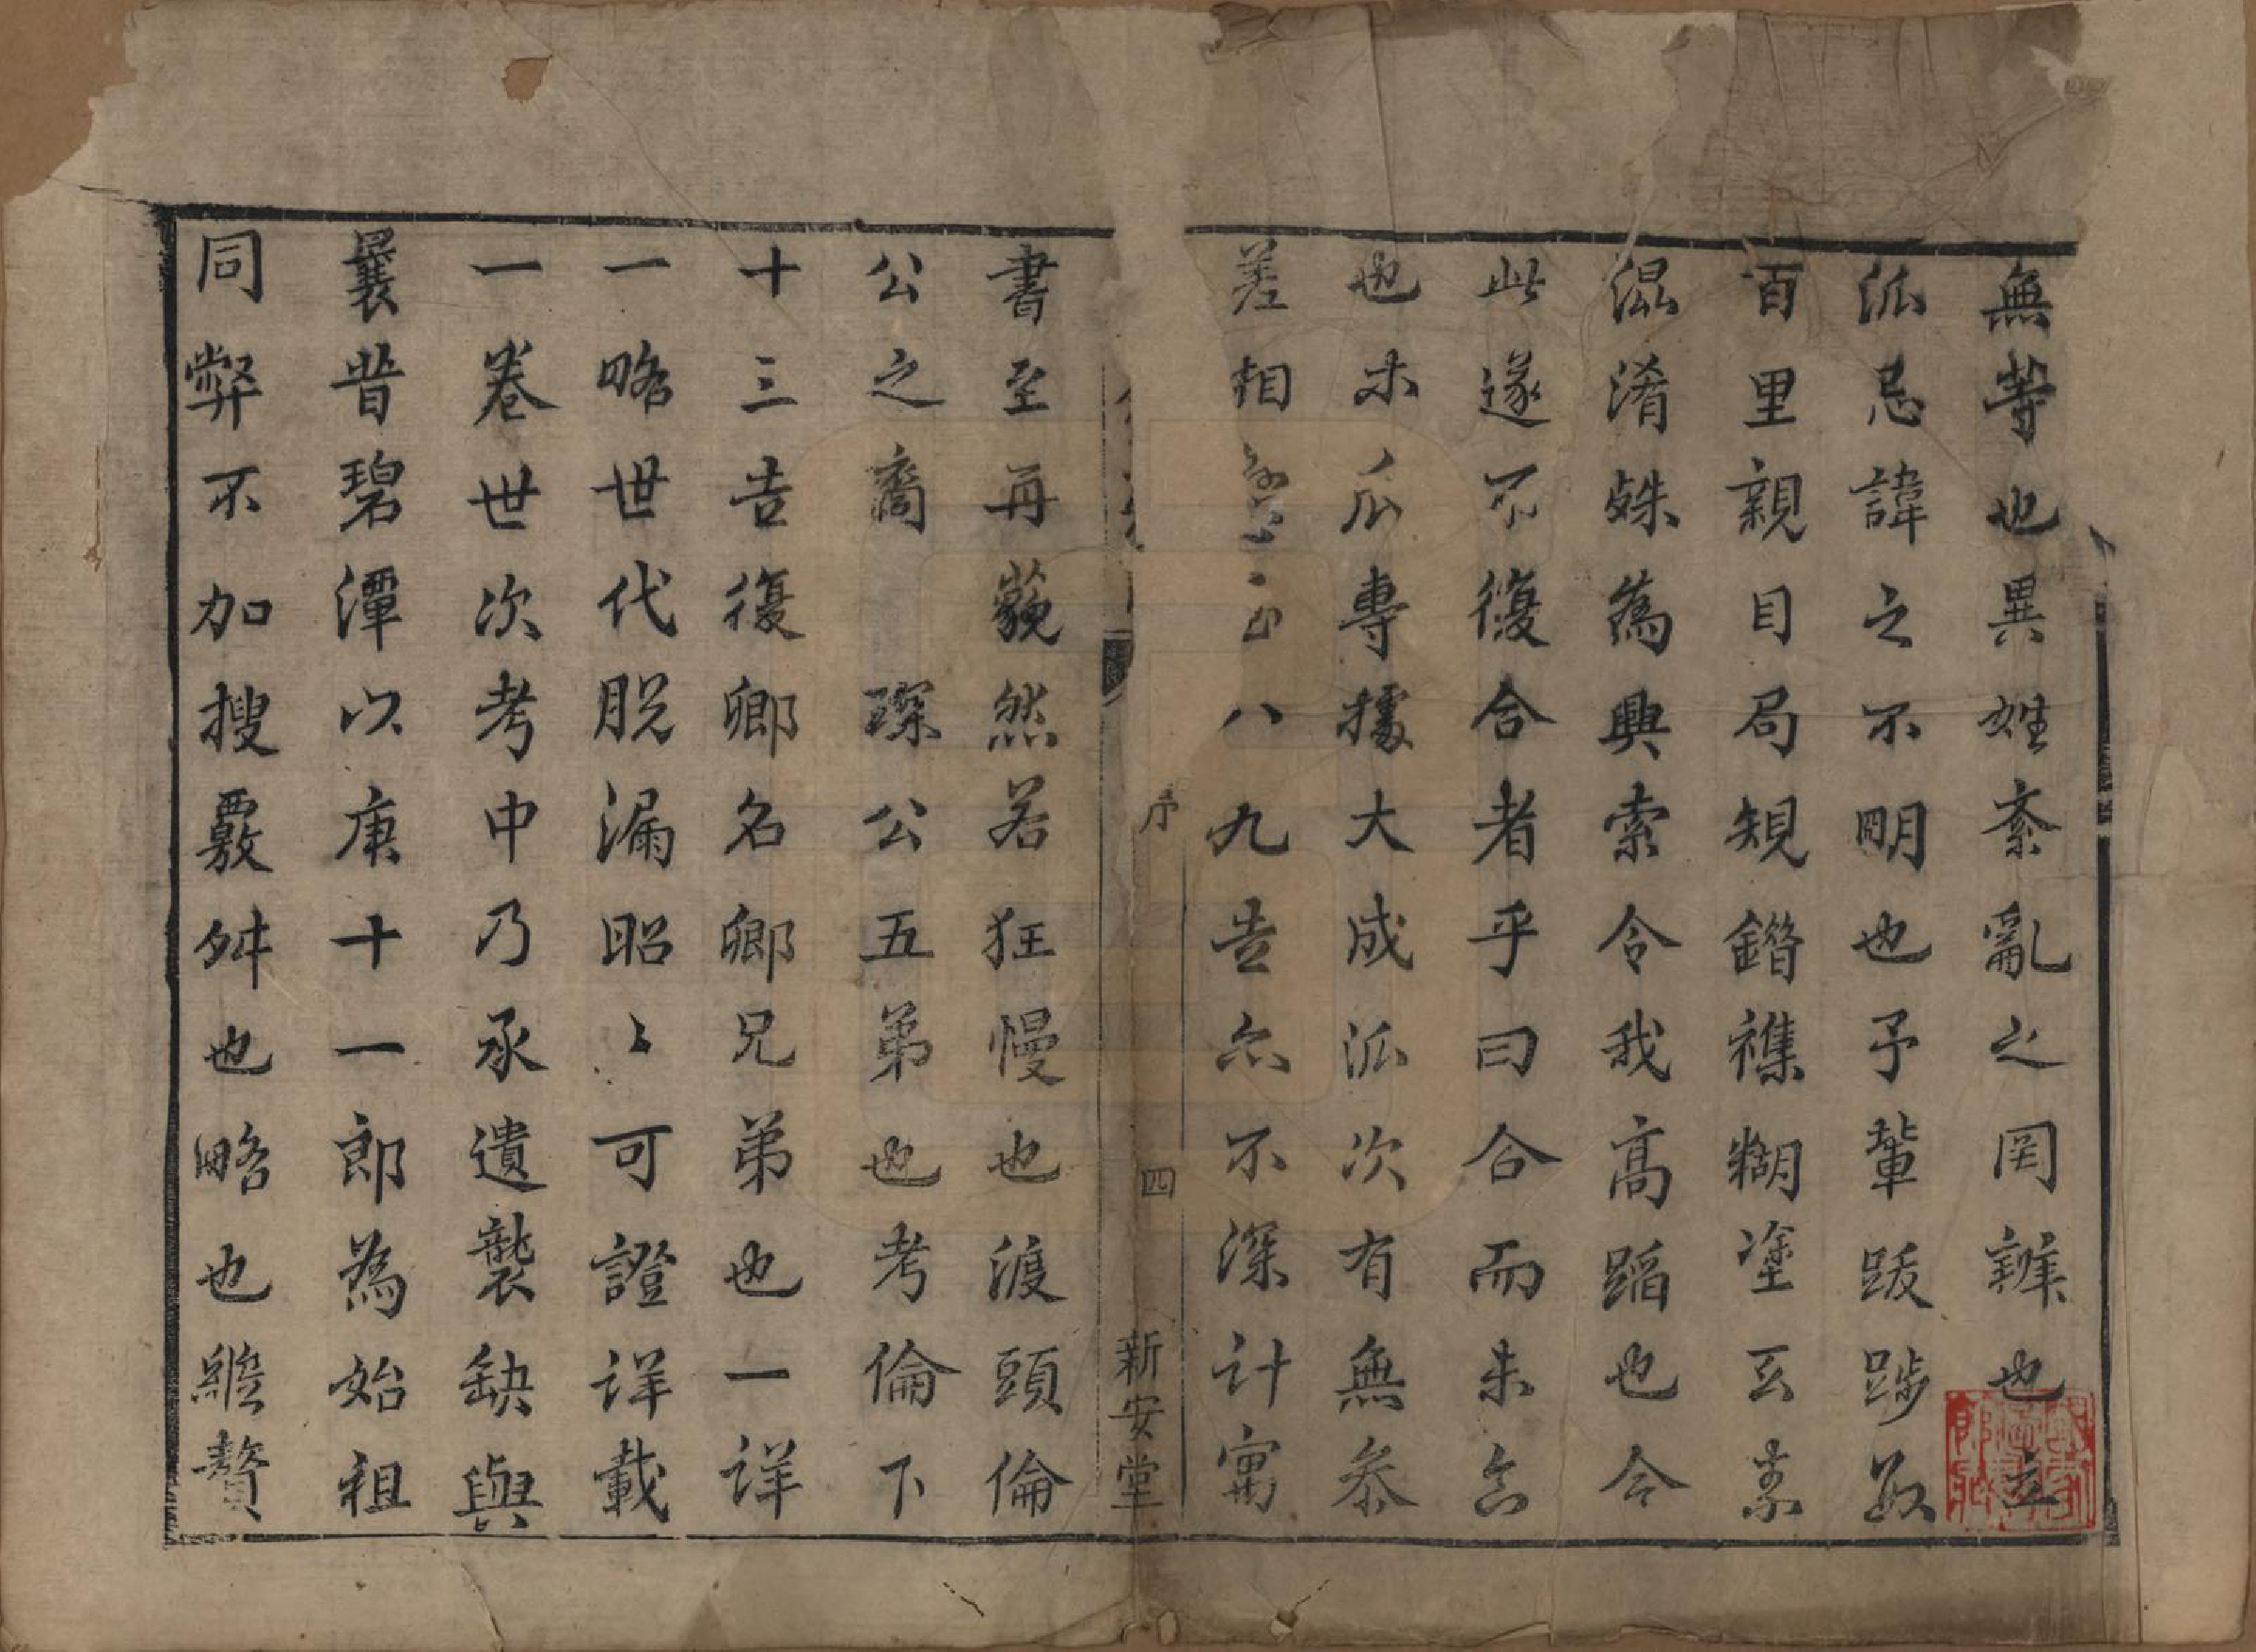 無等也異姓紊亂之罔辦也立
派忌諱之不明也予輩跋踄數
百里親目局規鐕襍糊塗玄素
混淆姝為興索令我高蹈也今
此遂不復合者乎曰合而未合
也木瓜專據大成派次有無叅
差相八九告亦不深計寓
序 四 新安堂
書至再藐然若狂慢也渡頭倫
公之裔 琛公五弟也考倫下
十三告復卿名卿兄弟也一詳
一略世代脫漏昭〻可證詳載
一卷世次考中乃承遺襲缺與
曩昔碧潭以庚十一郎為始祖
同弊不加搜覈舛也略也縱贅